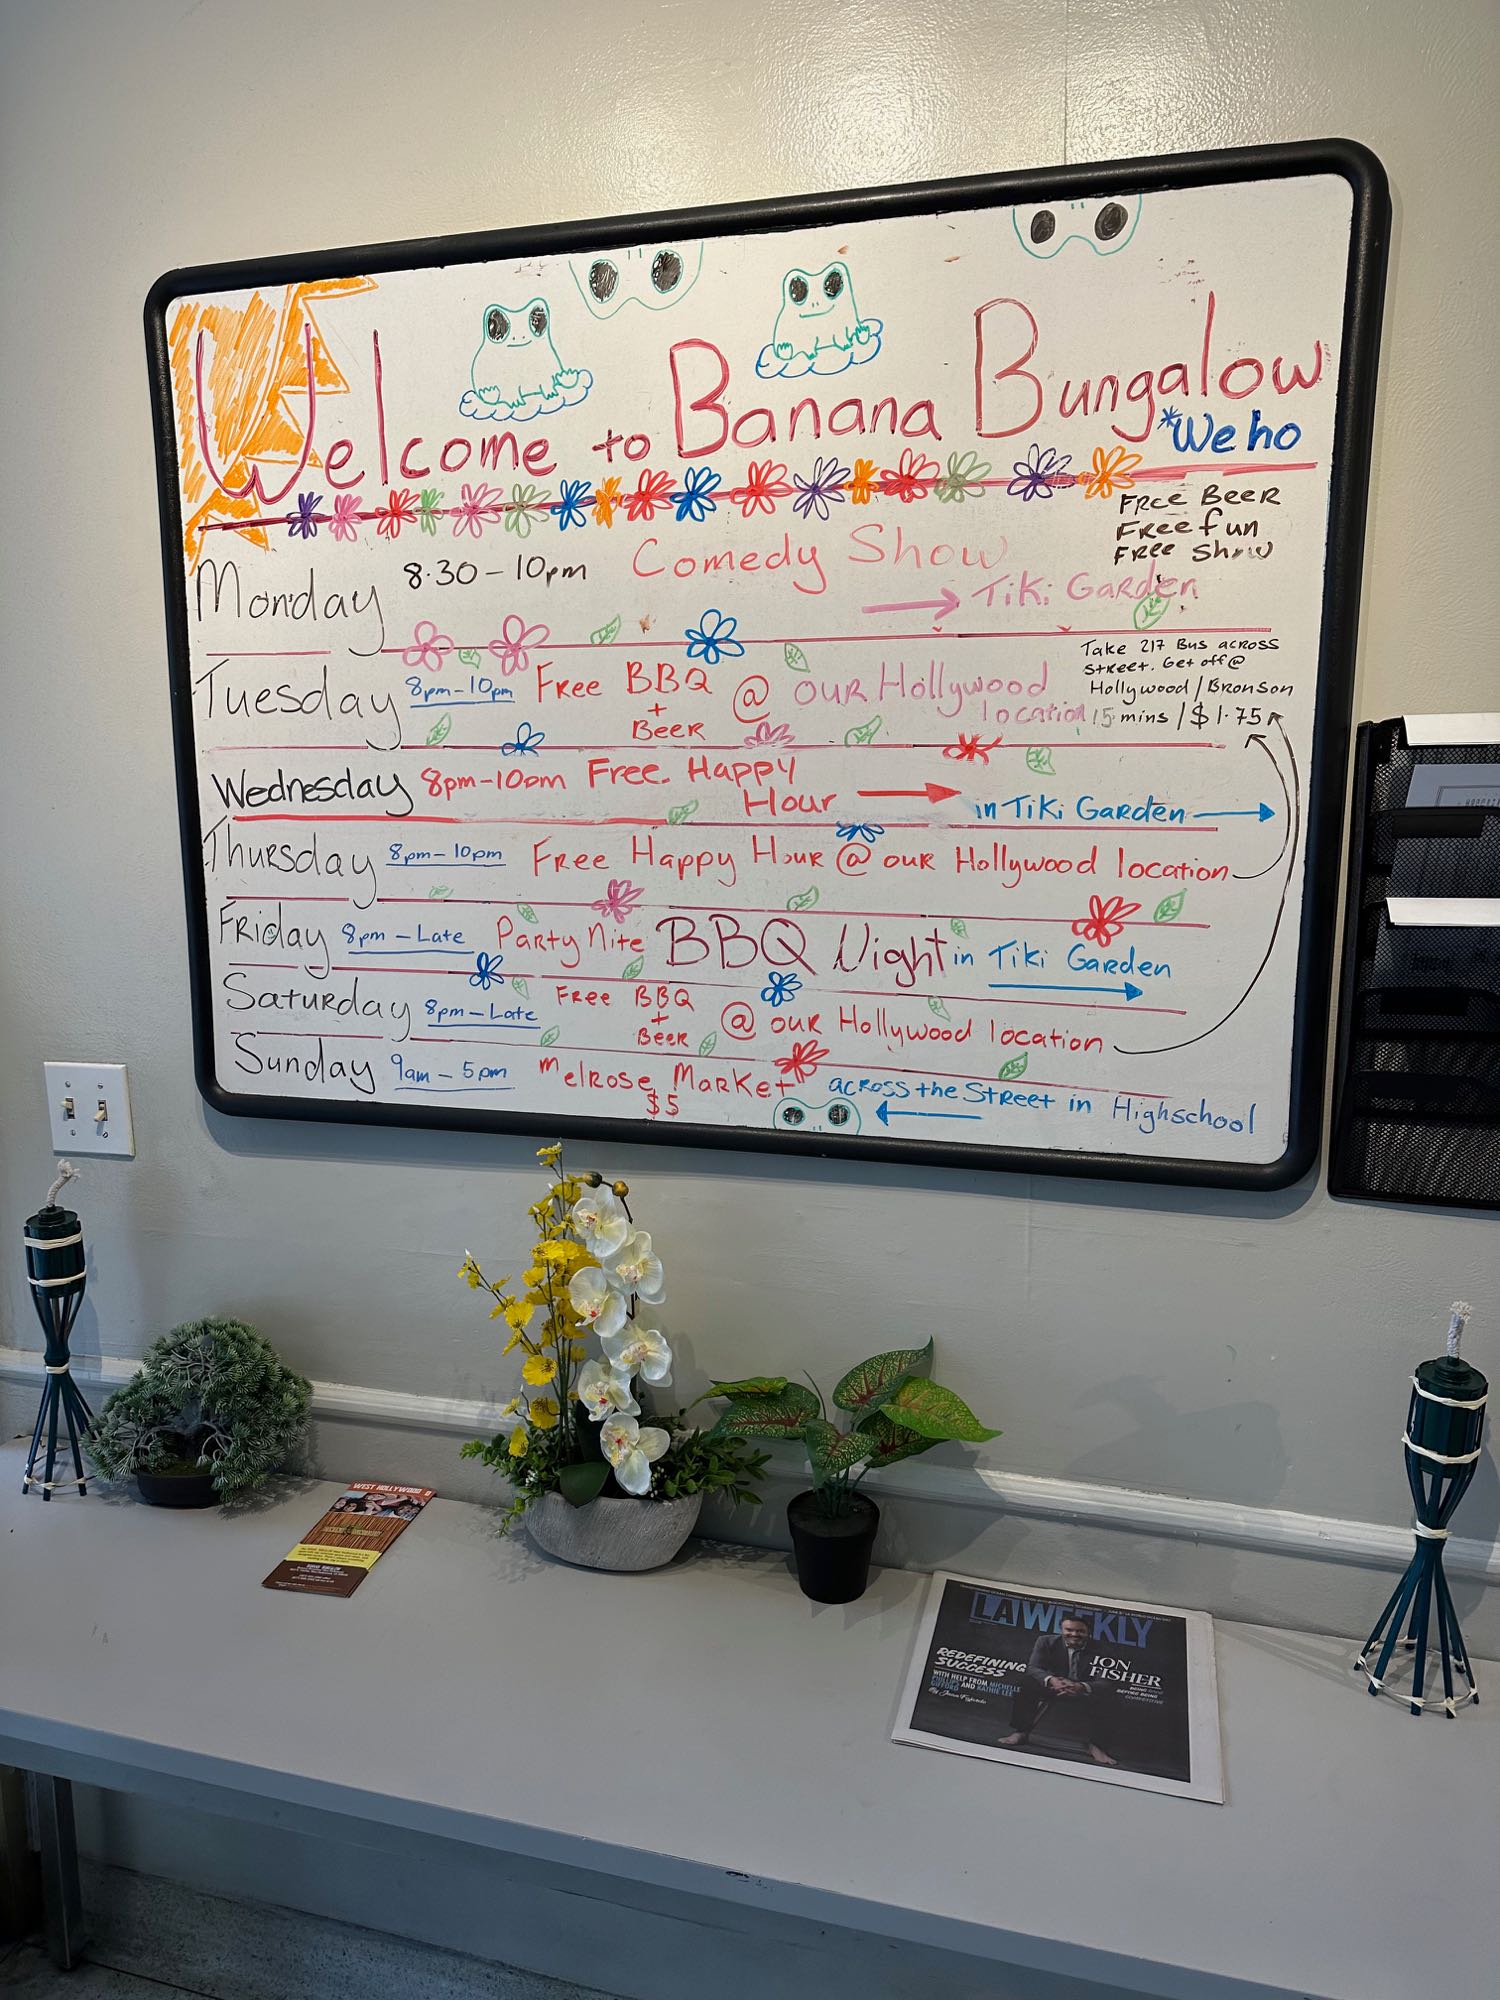 Welcome to Banana Bungalow
*Weho
Monday 8.30-10pm Comedy Show
FREE BEER
FREE fun
FREE Show
Tiki Garden
Tuesday 8pm-10pm Free BBQ + Beer @ our Hollywood location
Take 217 Bus across
street. Get off @
Hollywood/Bronson
15 mins / $1.75
Wednesday 8pm-10pm Free Happy Hour in Tiki Garden
Thursday 8pm-10pm Free Happy Hour @ our Hollywood location
Friday 8pm - Late Party Nite BBQ Night in Tiki Garden
Saturday 8pm-Late Free BBQ + Beer @ our Hollywood location
Sunday 9am - 5pm Melrose Market $5 across the Street in Highschool
WEST HOLLYWOOD
LAWEEKLY
REDEFINING
SUCCESS
WITH HELP FROM MICHELLE
PHILLIPS AND KATHIE LEE
GIFFORD
JON
FISHER